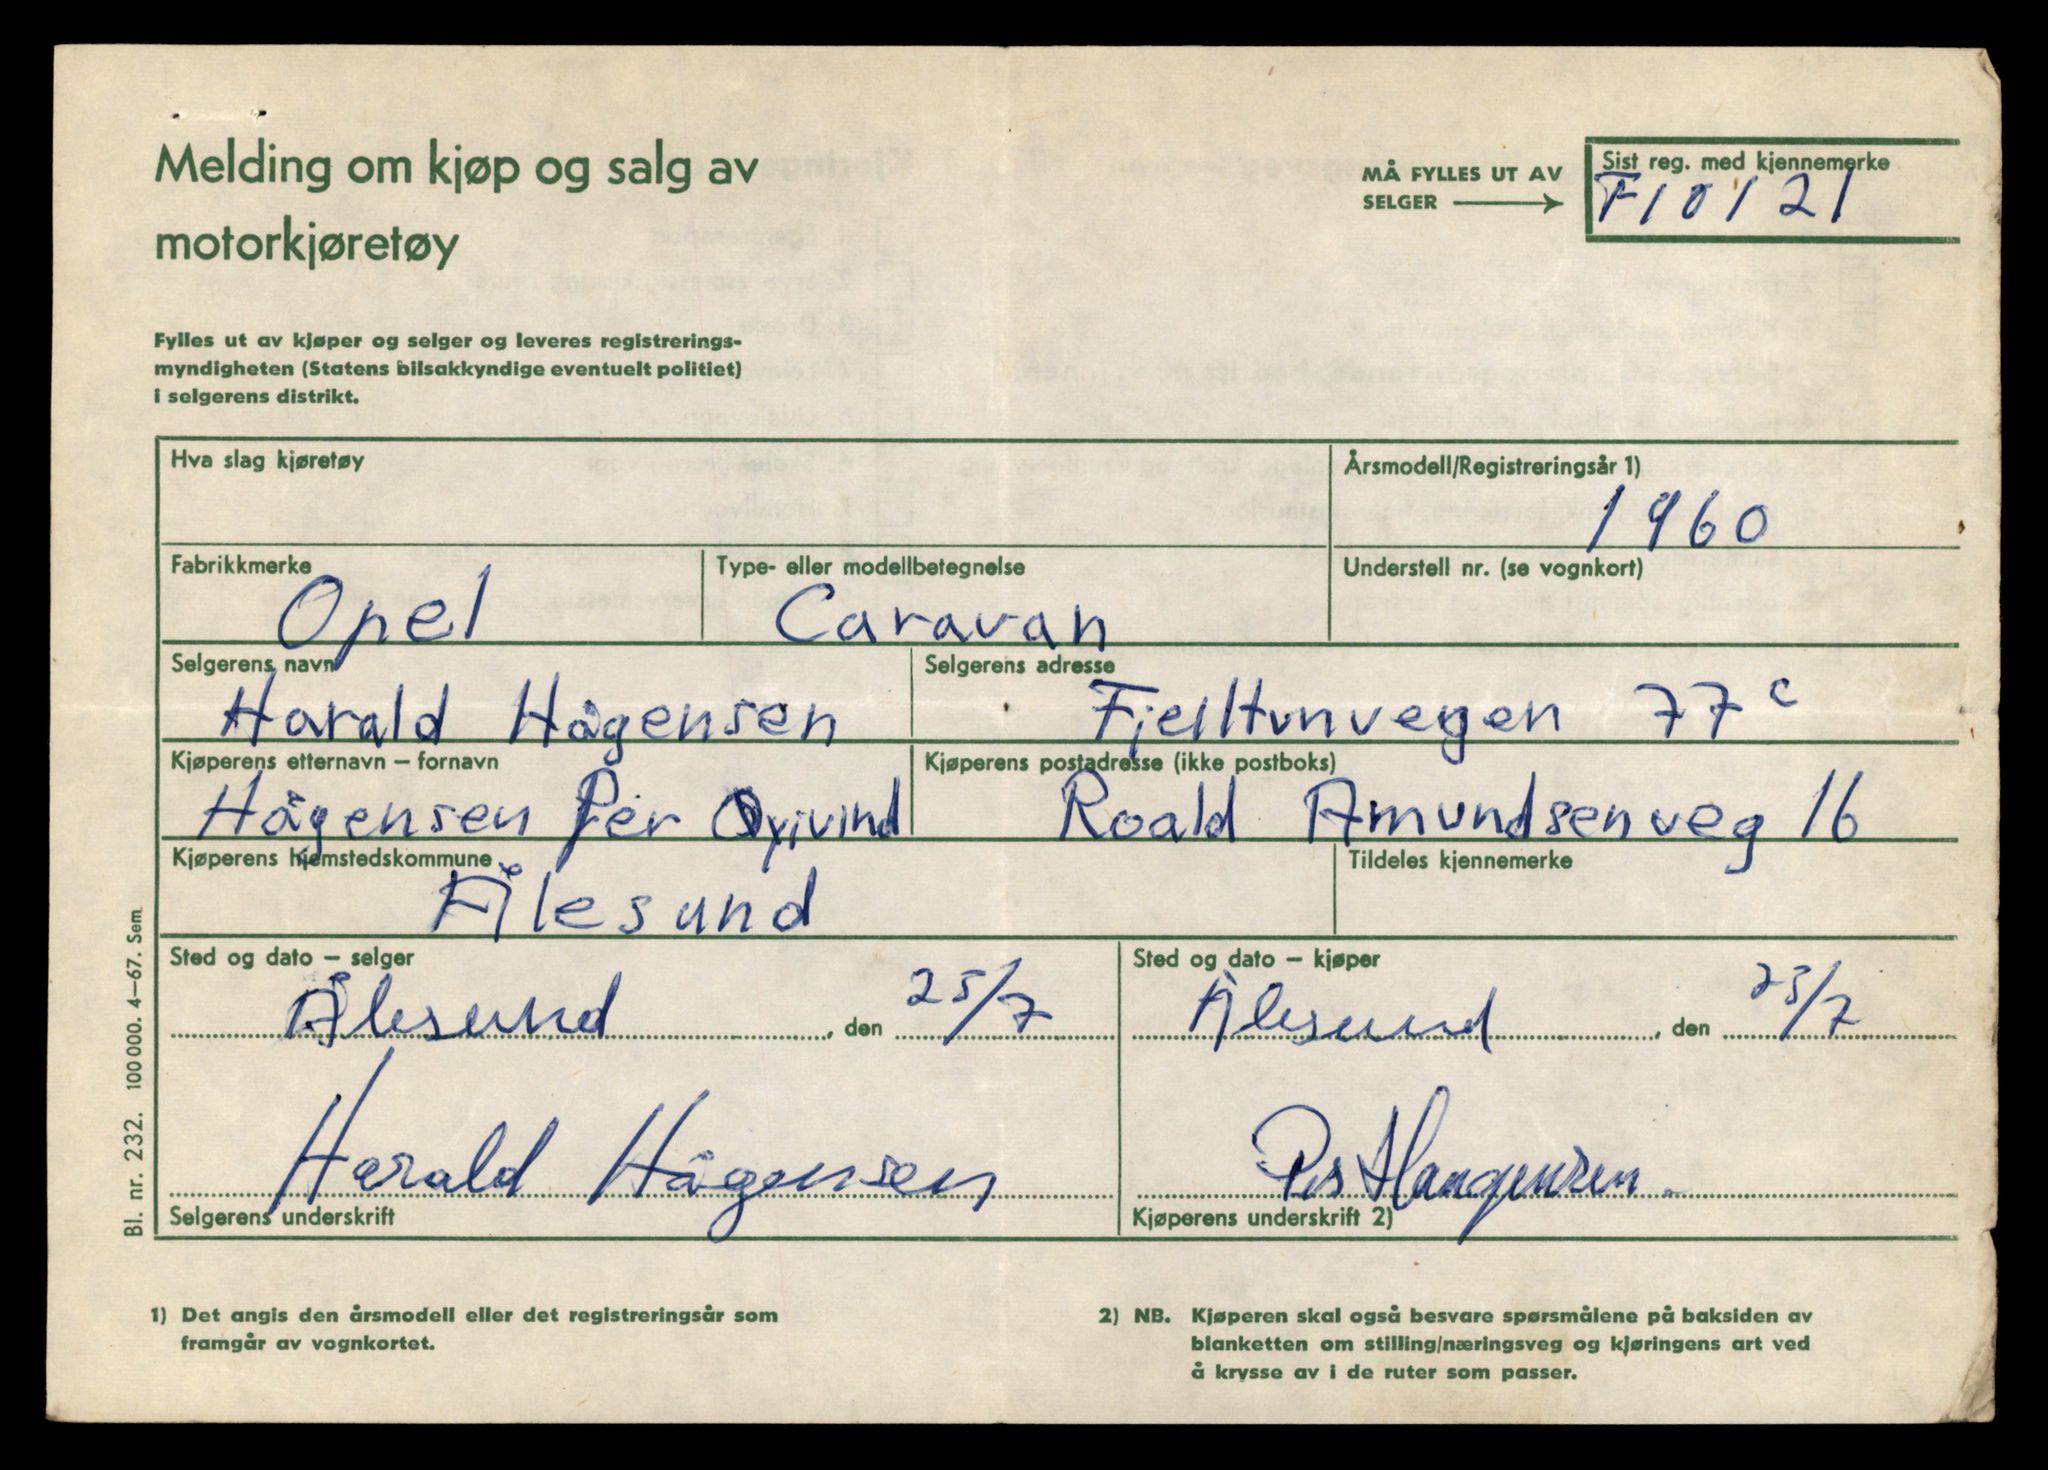 Melding om kjøp og salg av
motorkjøretøy
MÅ FYLLES UT AV
SELGER
Sist reg. med kjennemerke
F10121
Fylles ut av kjøper og selger og leveres registrerings-
myndigheten (Statens bilsakkyndige eventuelt politiet)
i selgerens distrikt.
Hva slag kjøretøy
Årsmodell/Registreringsår 1)
1960
Fabrikkmerke
Opel
Type- eller modellbetegnelse
Caravan
Understell nr. (se vognkort)
Selgerens navn
Harald Hågensen
Selgerens adresse
Fjelltunvegen 77 c
Kjøperens etternavn – fornavn
Hågensen Per Oyivind
Kjøperens postadresse (ikke postboks)
Roald Amundsenveg 16
Kjøperens hjemstedskommune
Ålesund
Tildeles kjennemerke
Sted og dato – selger
Ålesund, den 25/7
Sted og dato – kjøper
Ålesund, den 25/7
Harald Hågensen
Selgerens underskrift
Per Haagensen
Kjøperens underskrift 2)
Bl. nr. 232. 100 000. 4–67. Sem
1) Det angis den årsmodell eller det registreringsår som
framgår av vognkortet.
2) NB. Kjøperen skal også besvare spørsmålene på baksiden av
blanketten om stilling/næringsveg og kjøringens art ved
å krysse av i de ruter som passer.